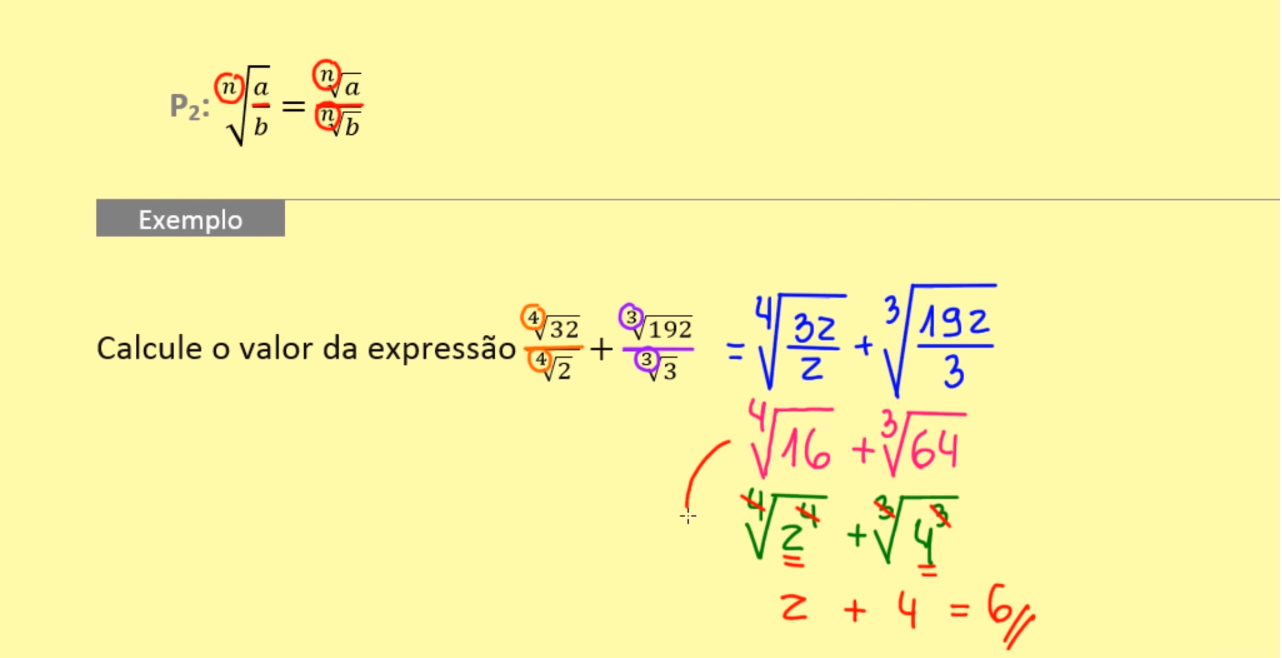 P₂: ⁿ√(a/b) = ⁿ√a / ⁿ√b
Exemplo
Calcule o valor da expressão ⁴√32 / ⁴√2 + ³√192 / ³√3 = ⁴√(32/2) + ³√(192/3)
⁴√16 + ³√64
⁴√2⁴ + ³√4³
2 + 4 = 6//